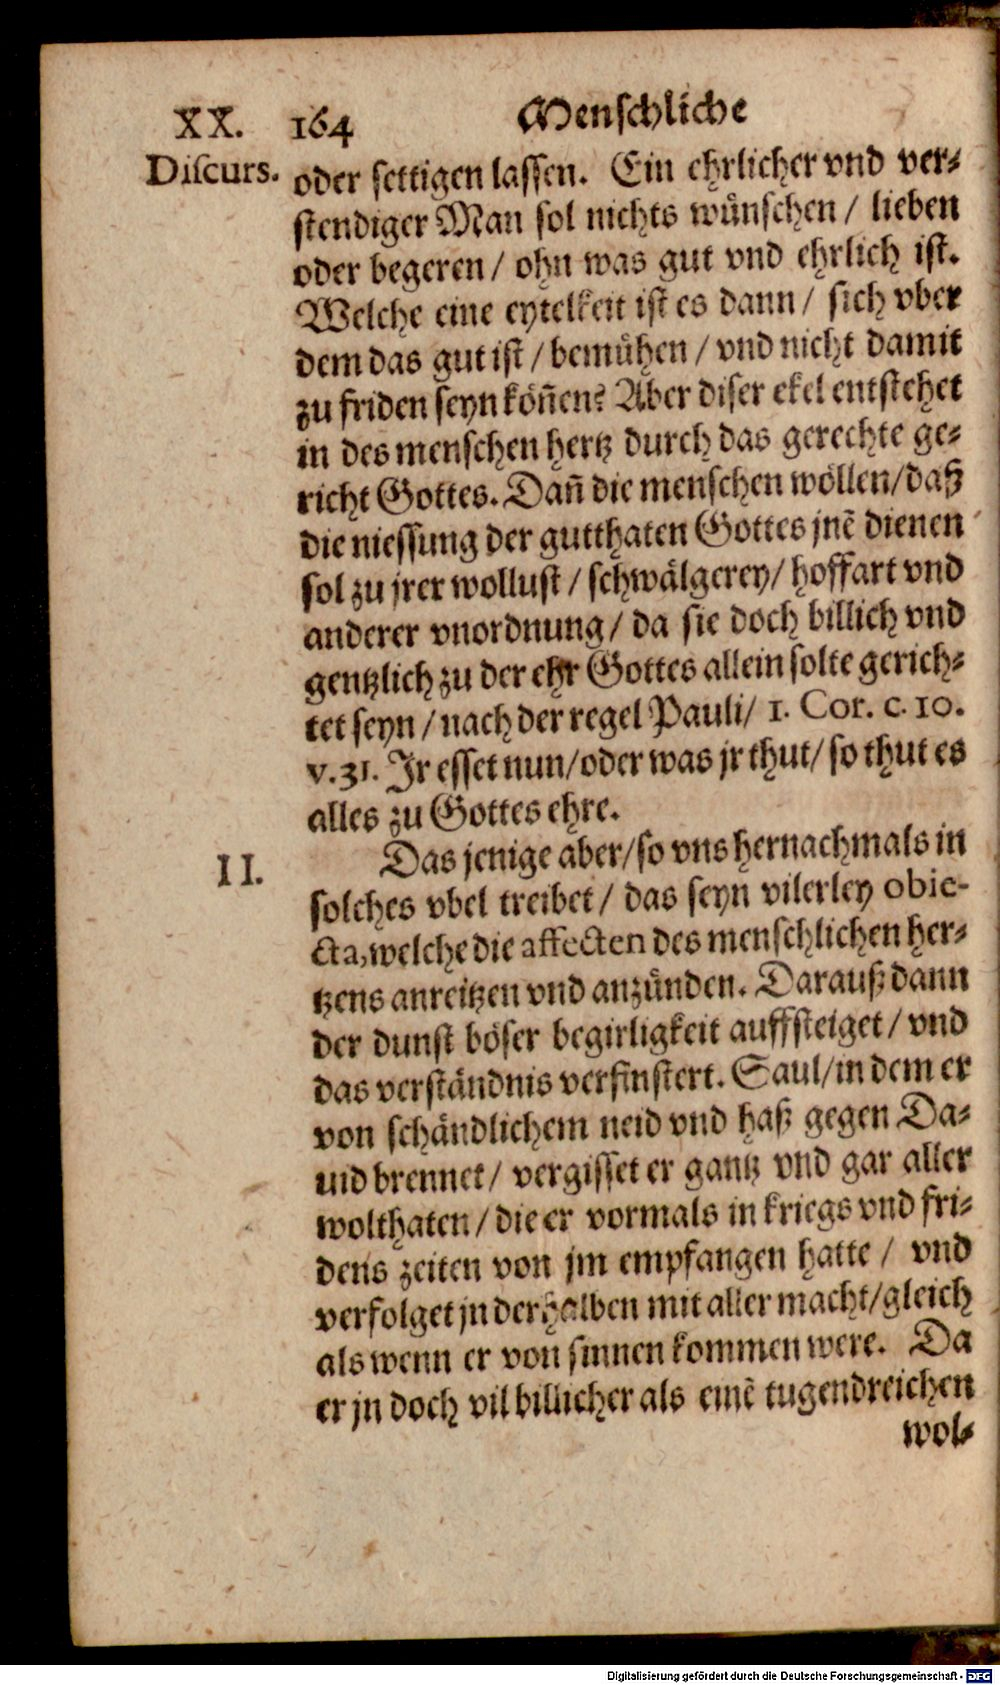 XX. 164 Menschliche
Discurs.
oder settigen lassen. Ein ehrlicher vnd ver-
stendiger Man sol nichts wünschen / lieben
oder begeren / ohn was gut vnd ehrlich ist.
Welche eine eytelkeit ist es dann / sich vber
dem das gut ist / bemühen / vnd nicht damit
zu friden seyn köñen? Aber diser ekel entstehet
in des menschen hertz durch das gerechte ge-
richt Gottes. Dañ die menschen wöllen/daß
die niessung der gutthaten Gottes jnē dienen
sol zu jrer wollust / schwälgerey/ hoffart vnd
anderer vnordnung/ da sie doch billich vnd
gentzlich zu der ehr Gottes allein solte gerich-
tet seyn / nach der regel Pauli/ 1. Cor. c. 10.
v. 31. Jr esset nun/oder was jr thut/ so thut es
alles zu Gottes ehre.
II. Das jenige aber/so vns hernachmals in
solches vbel treibet / das seyn vilerley obie-
cta, welche die affecten des menschlichen her-
tzens anreitzen vnd anzünden. Darauß dann
der dunst böser begirligkeit auffsteiget / vnd
das verständnis verfinstert. Saul/in dem er
von schändlichem neid vnd haß gegen Da-
uid brennet/ vergisset er gantz vnd gar aller
wolthaten / die er vormals in kriegs vnd fri-
dens zeiten von jm empfangen hatte / vnd
verfolget jn derhalben mit aller macht/gleich
als wenn er von sinnen kommen were. Da
er jn doch vil billicher als einē tugendreichen
wol-
Digitalisierung gefördert durch die Deutsche Forschungsgemeinschaft - DFG